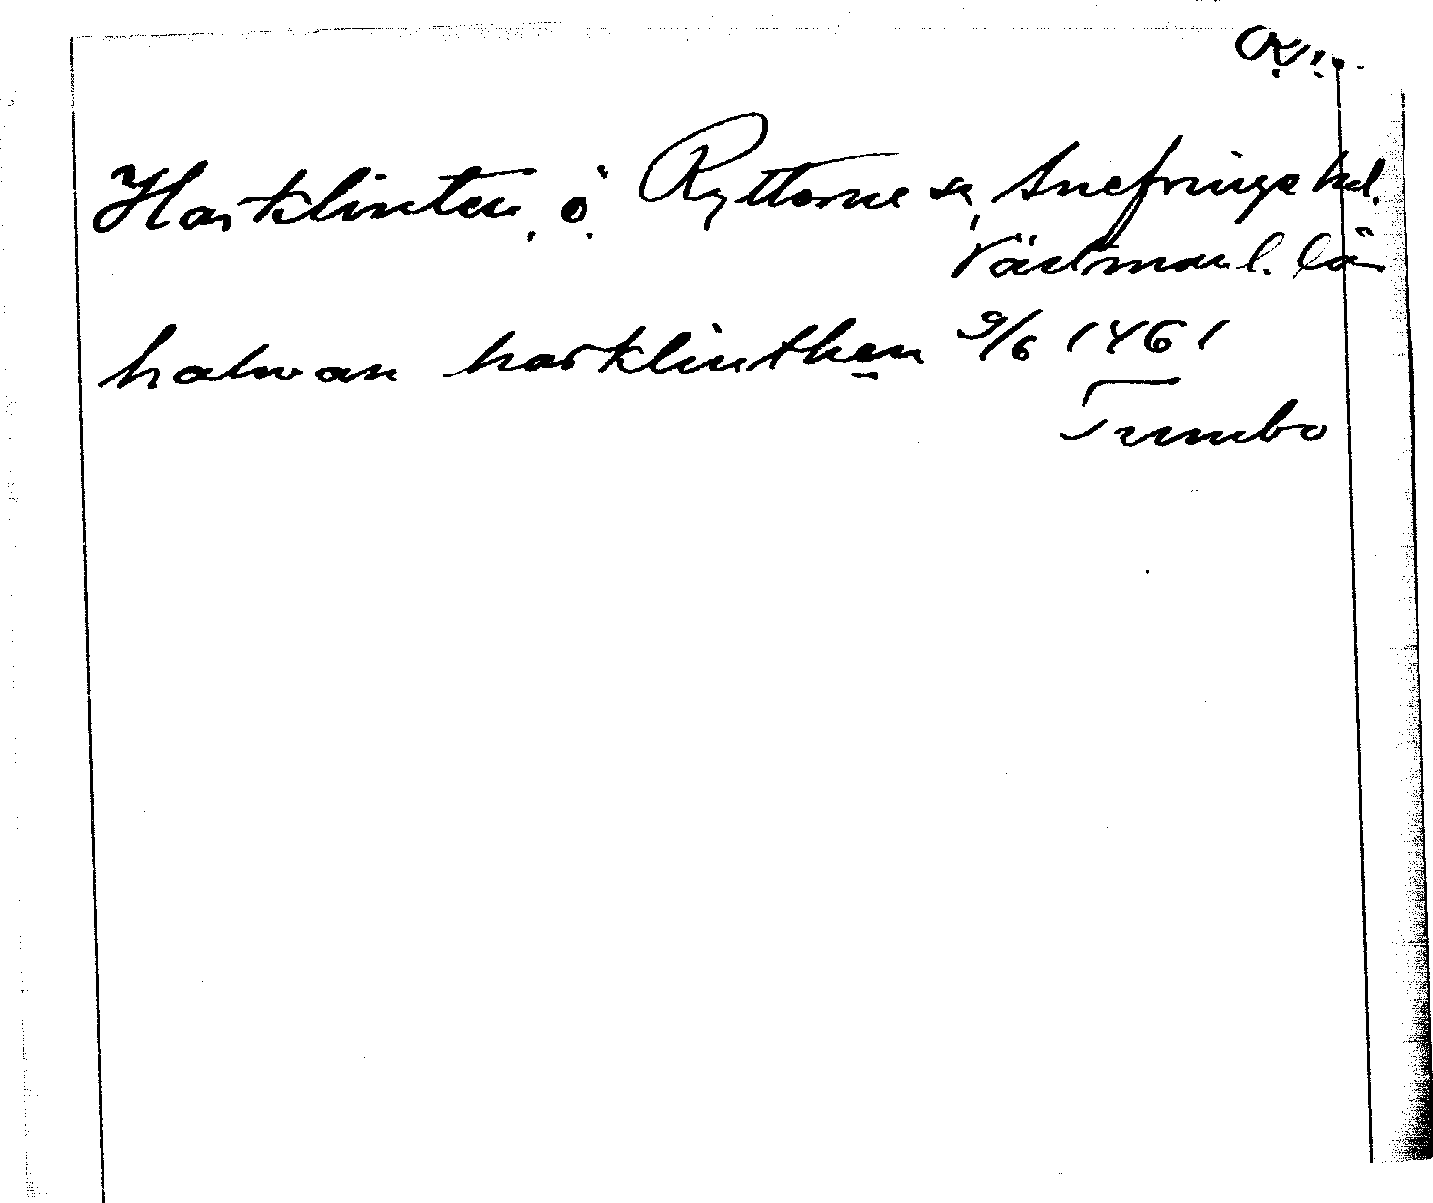 Harklinten, ö. Rytterne sn, Snefringe hd.
Västmanl. län
halwan harklinthen 9/6 1461
Tumbo